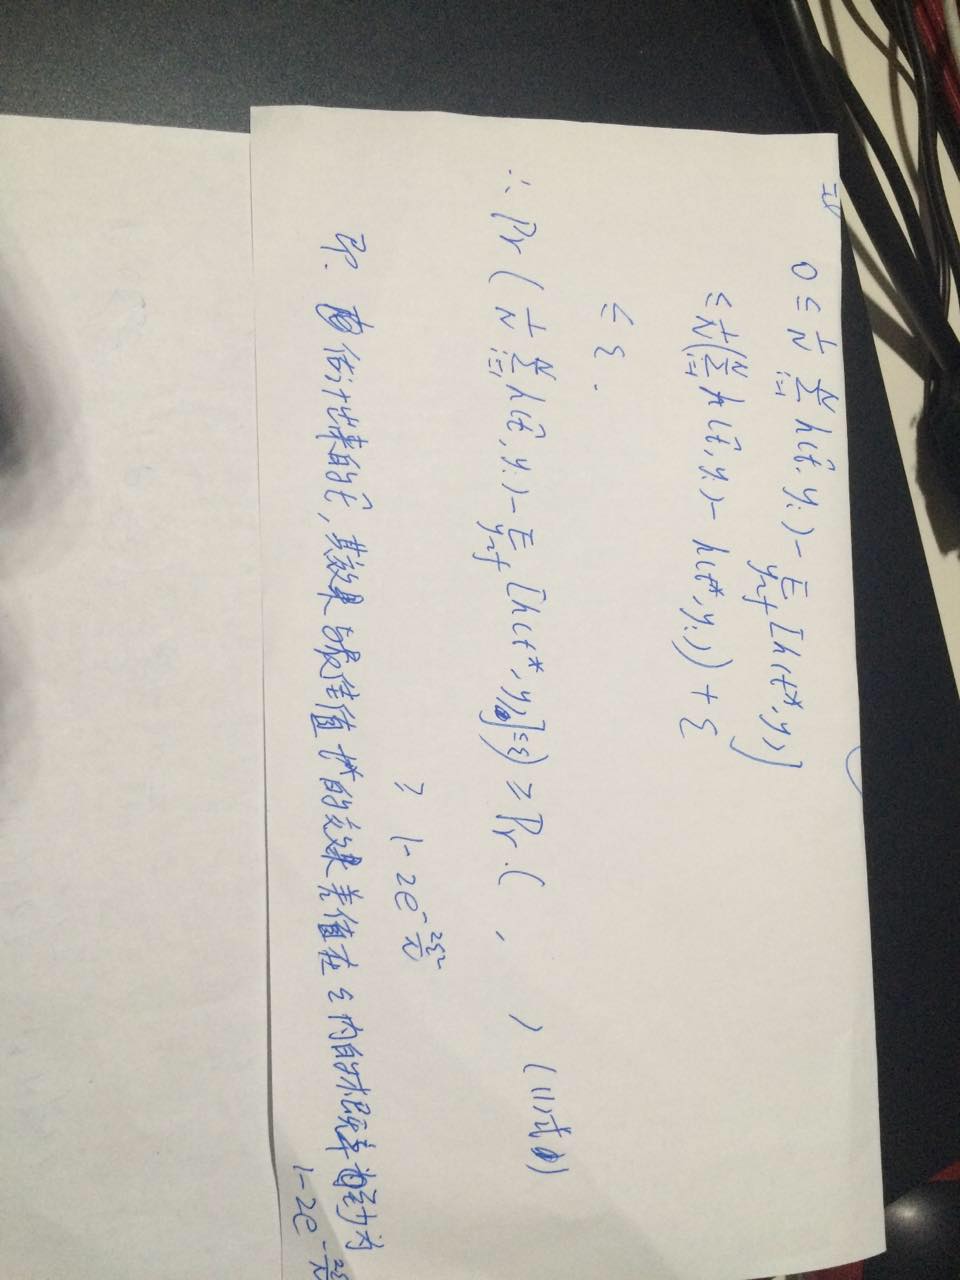 0 ≤ 1/N Σ_{i=1}^{N} h(t̂, y_i) - E_{y~f} [h(t*, y)]
≤ 1/N (Σ_{i=1}^{N} h(t̂, y_i) - h(t*, y_i)) + ε
≤ ε.
∴ Pr( 1/N Σ_{i=1}^{N} h(t̂, y_i) - E_{y~f} [h(t*, y)] ≤ε) ≥ Pr.( , ) (11)式
≥ 1-2e^{-2ε²/N}
即. 估计出来的t̂,其效果与最佳值t*的效果差值在ε内的概率至少为
1-2e^{-2ε/N}